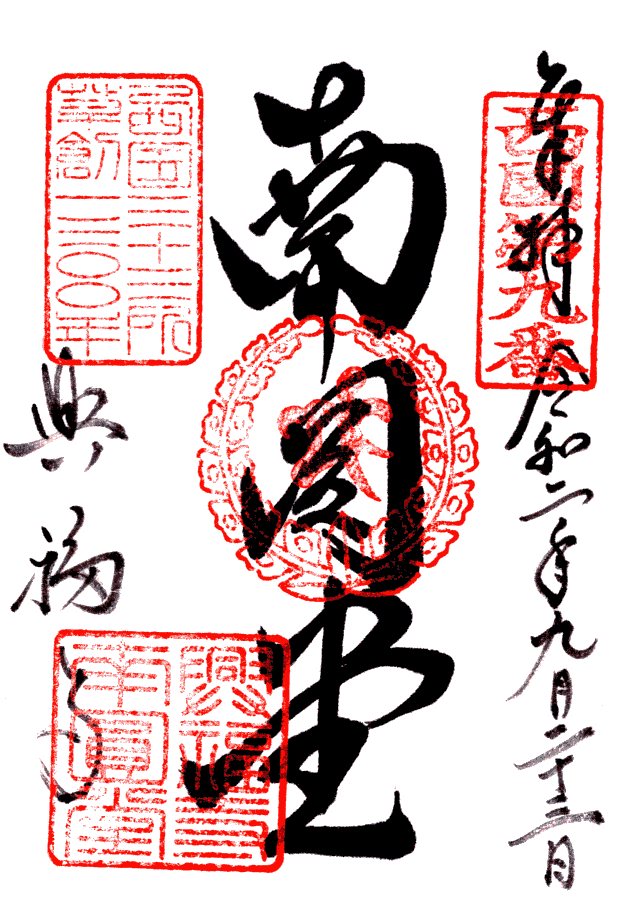 奉拝
西国第九番
令和二年九月二十三日
南圓堂
西国三十三所
草創一三〇〇年
興福寺
興福寺
南圓堂